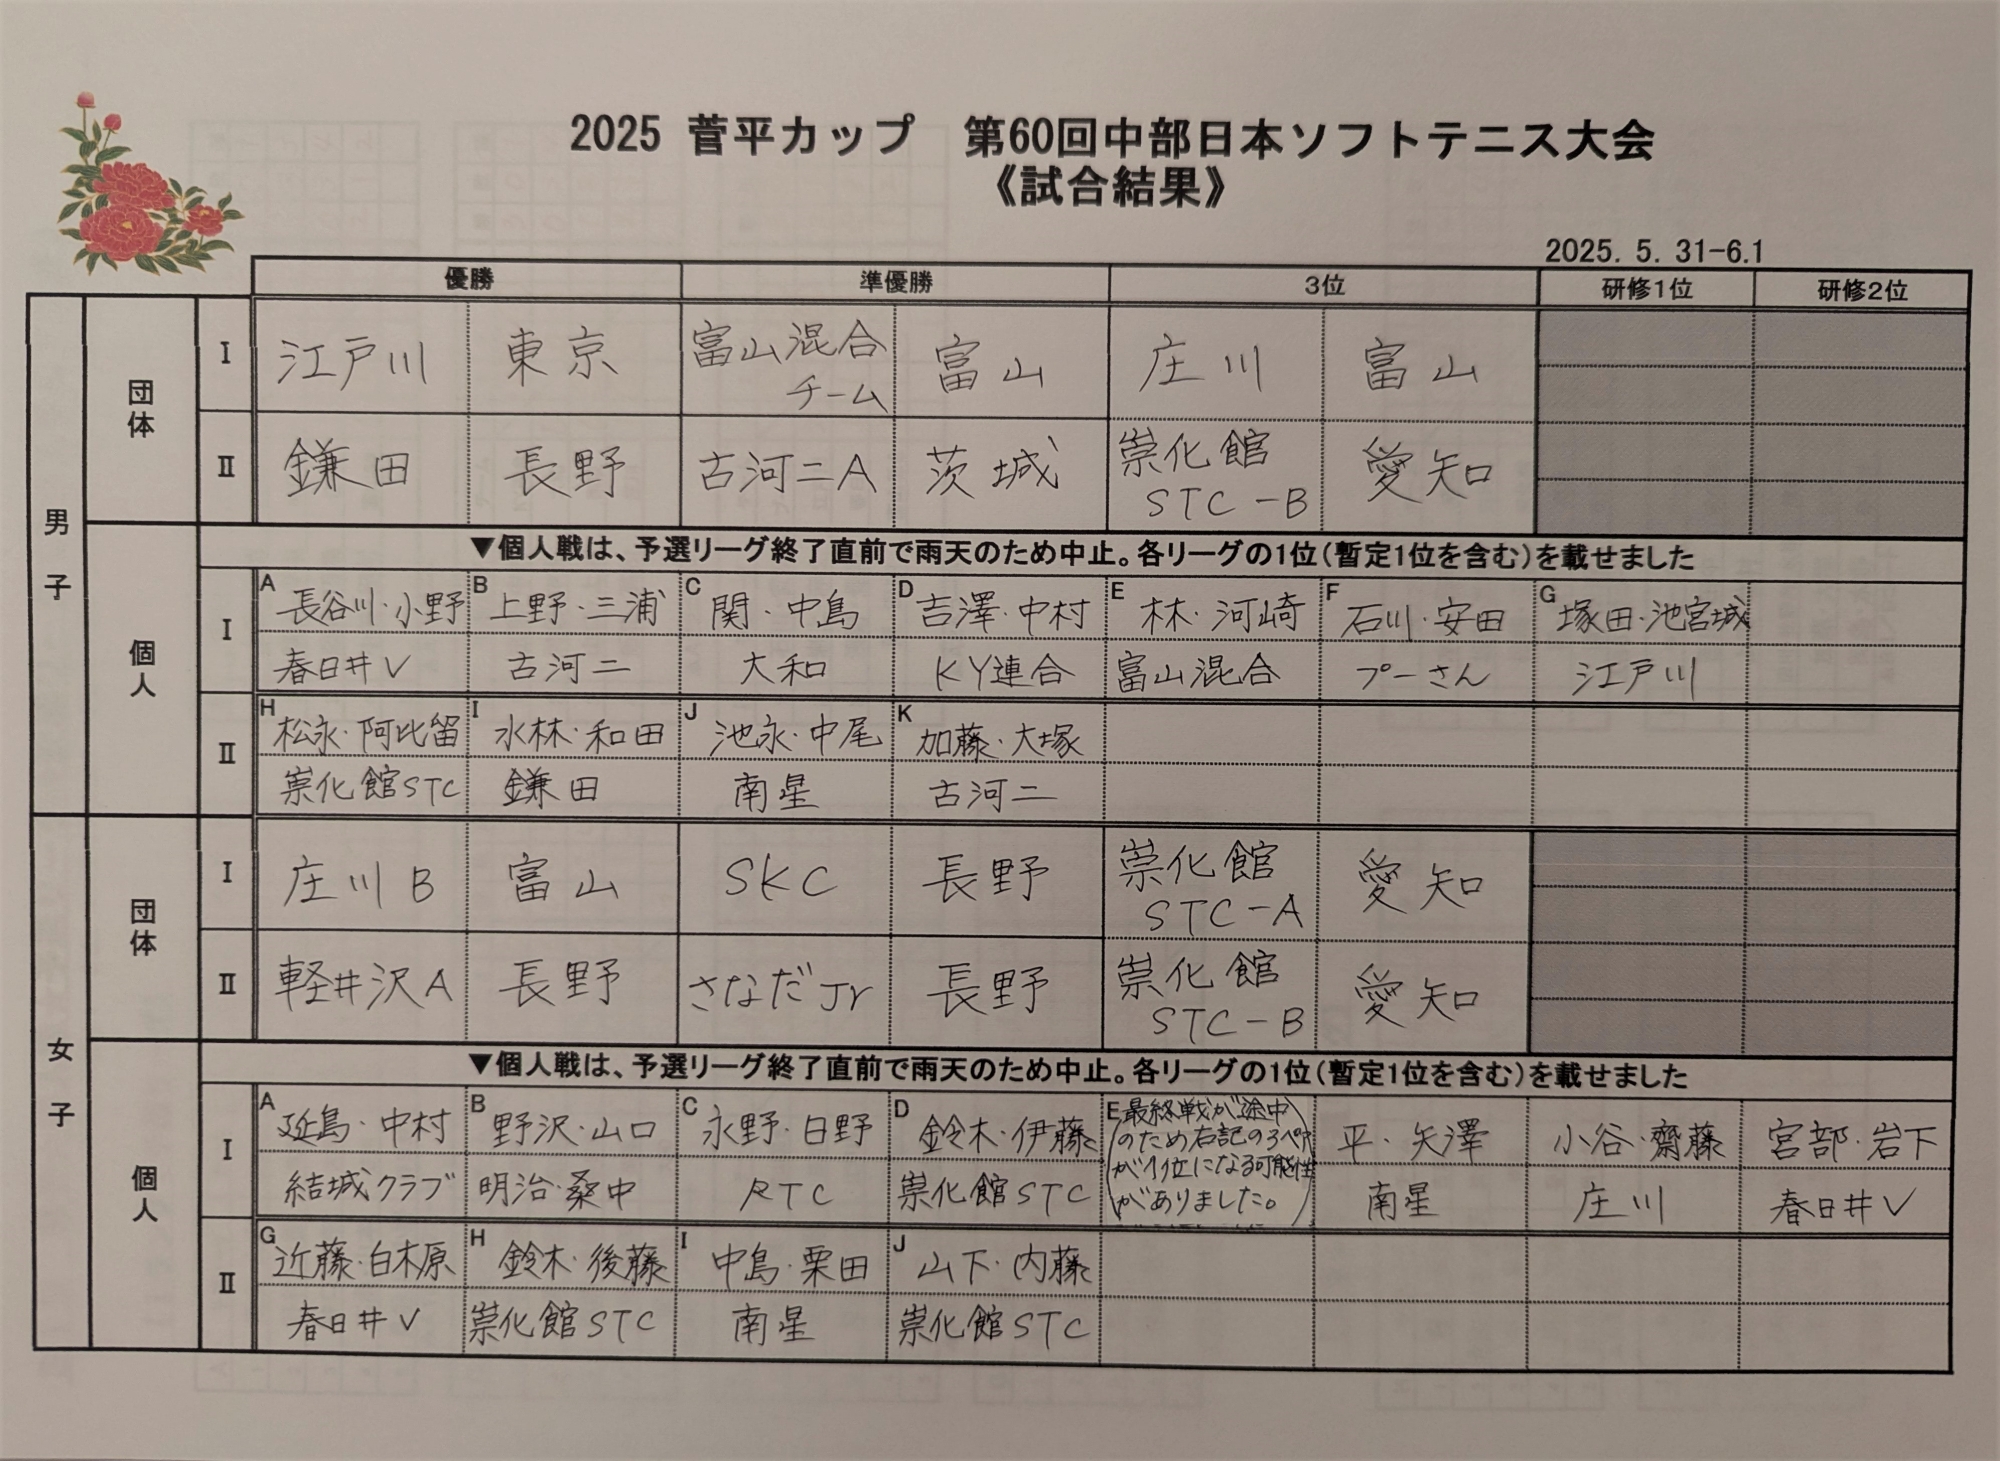 2025 菅平カップ 第60回中部日本ソフトテニス大会
《試合結果》
2025. 5. 31-6.1
優勝 準優勝 3位 研修1位 研修2位
男子
団体
Ⅰ 江戸川 東京 富山混合チーム 富山 庄川 富山
Ⅱ 鎌田 長野 古河二A 茨城 崇化館STC-B 愛知
個人
▼個人戦は、予選リーグ終了直前で雨天のため中止。各リーグの1位(暫定1位を含む)を載せました
Ⅰ
A 長谷川・小野 B 上野・三浦 C 関・中島 D 吉澤・中村 E 林・河崎 F 石川・安田 G 塚田・池宮城
春日井V 古河二 大和 KY連合 富山混合 プーさん 江戸川
Ⅱ
H 松永・阿比留 I 水林・和田 J 池永・中尾 K 加藤・大塚
崇化館STC 鎌田 南星 古河二
女子
団体
Ⅰ 庄川B 富山 SKC 長野 崇化館STC-A 愛知
Ⅱ 軽井沢A 長野 さなだJr 長野 崇化館STC-B 愛知
個人
▼個人戦は、予選リーグ終了直前で雨天のため中止。各リーグの1位(暫定1位を含む)を載せました
Ⅰ
A 延島・中村 B 野沢・山口 C 永野・日野 D 鈴木・伊藤 E 最終戦が途中のため右記の3ペアが1位になる可能性がありました。 平・矢澤 小谷・齋藤 宮部・岩下
結城クラブ 明治・桑中 RTC 崇化館STC 南星 庄川 春日井V
Ⅱ
G 近藤・白木原 H 鈴木・後藤 I 中島・栗田 J 山下・内藤
春日井V 崇化館STC 南星 崇化館STC